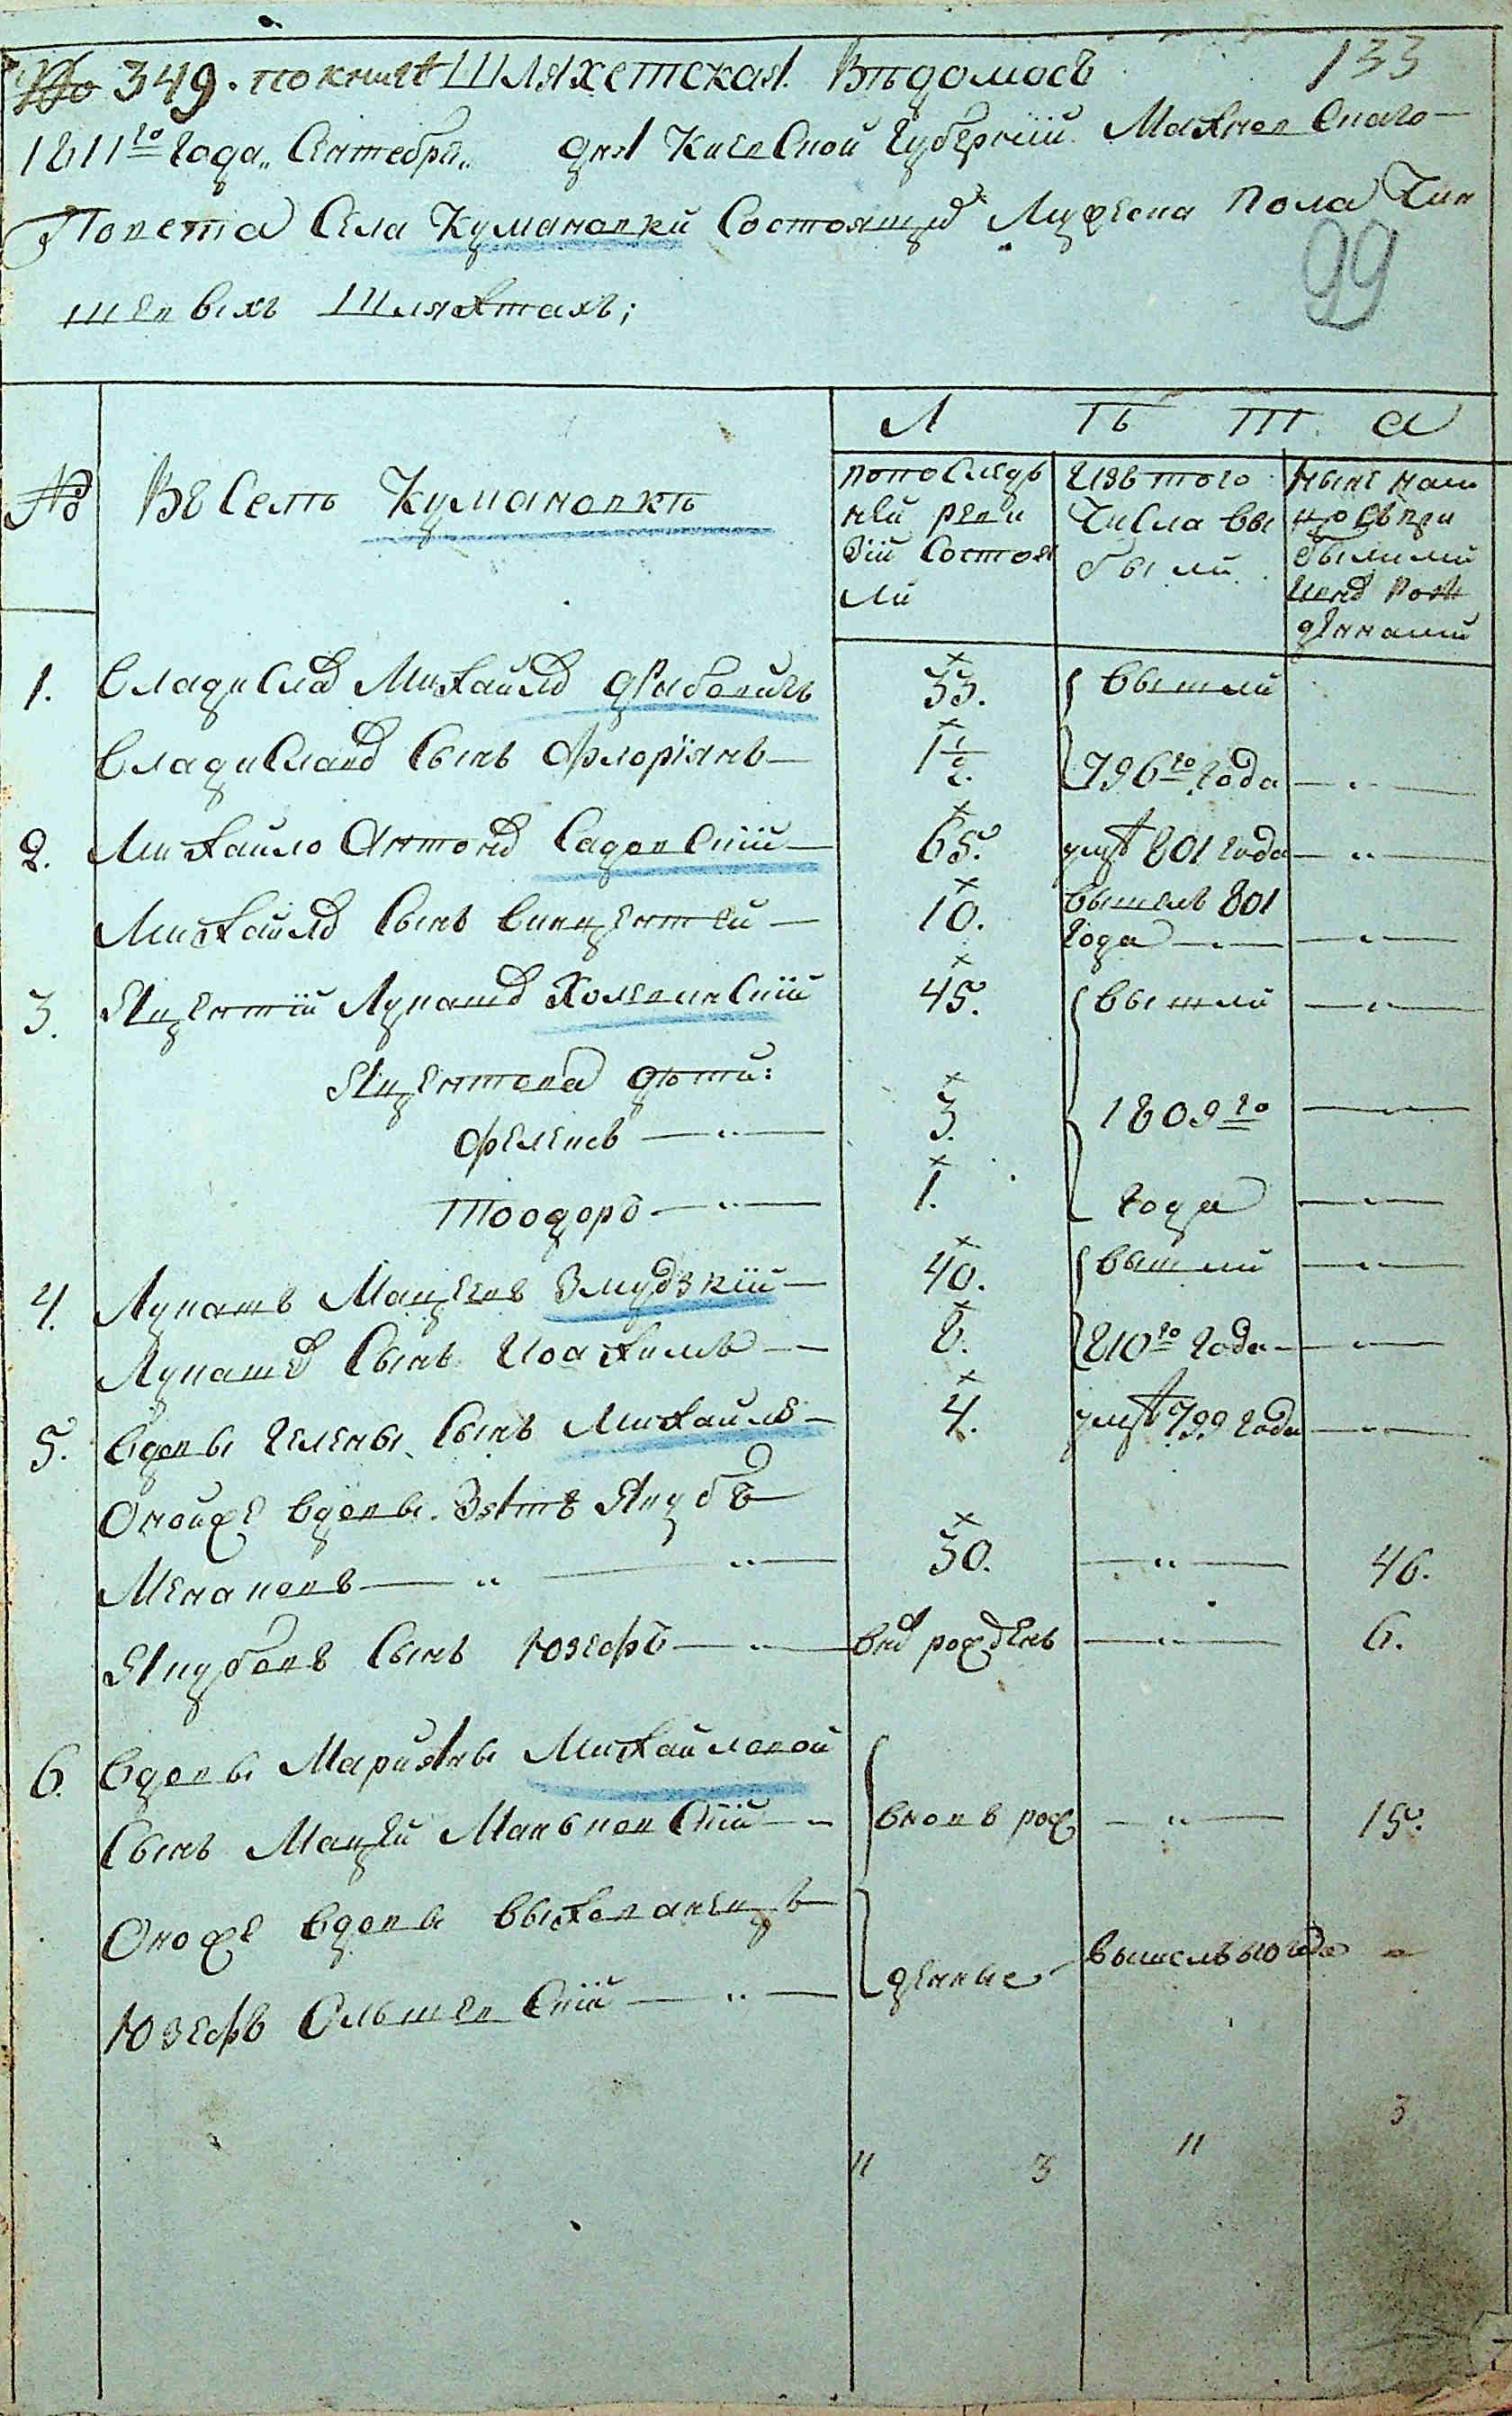 № 349. по книге Шляхетская. Вѣдомось 133
1811го года„ Сентебря„ дня Киевской Губернiи Махновскаго
Повета Села Кумановки Состоящих Мужеска пола Чин
шевыхъ Шляхтахъ; 99
Л ѣ т а
№ Въ Селѣ Кумановкѣ
по последь
ней реви
зiи состоя
ли
изъ того
Числа вы
были
ныне на
лицо съ при
былыми
и рож
денными
1. Владислав Михайлов 33. вышли
Владиславов Сынъ Флорiянъ 1 1/2. 796го года
2. Михайло Антонов Садовскiй 65. умре 801 года
Михайлов Сынъ Винцентей 10. вышелъ 801
года
3. Яцентiй Лукашов Холевинскiй 45. вышли
Яцентова дѣти:
Фелексъ 3. 1809го
Тоодоръ 1. года
4. Лукашъ Мацеевъ Змудзкiй 40. вышли
Лукашев Сынъ Иоахимъ 8. 810го года
5. Вдовы Гелены Сынъ Михайло 4. умре 799 года
Онойже вдовы Зять Якубъ
Менаковъ 30. 46.
Якубовъ Сынъ Юзефъ внов рожденъ 6.
6. Вдовы Марияны Михайловой
Сынъ Мацей Маньковскiй вновъ рож 15.
Оноже вдовы выхованецъ
Юзефъ Ольшевскiй денные вышелъ 810 года
„ 3 „ 3